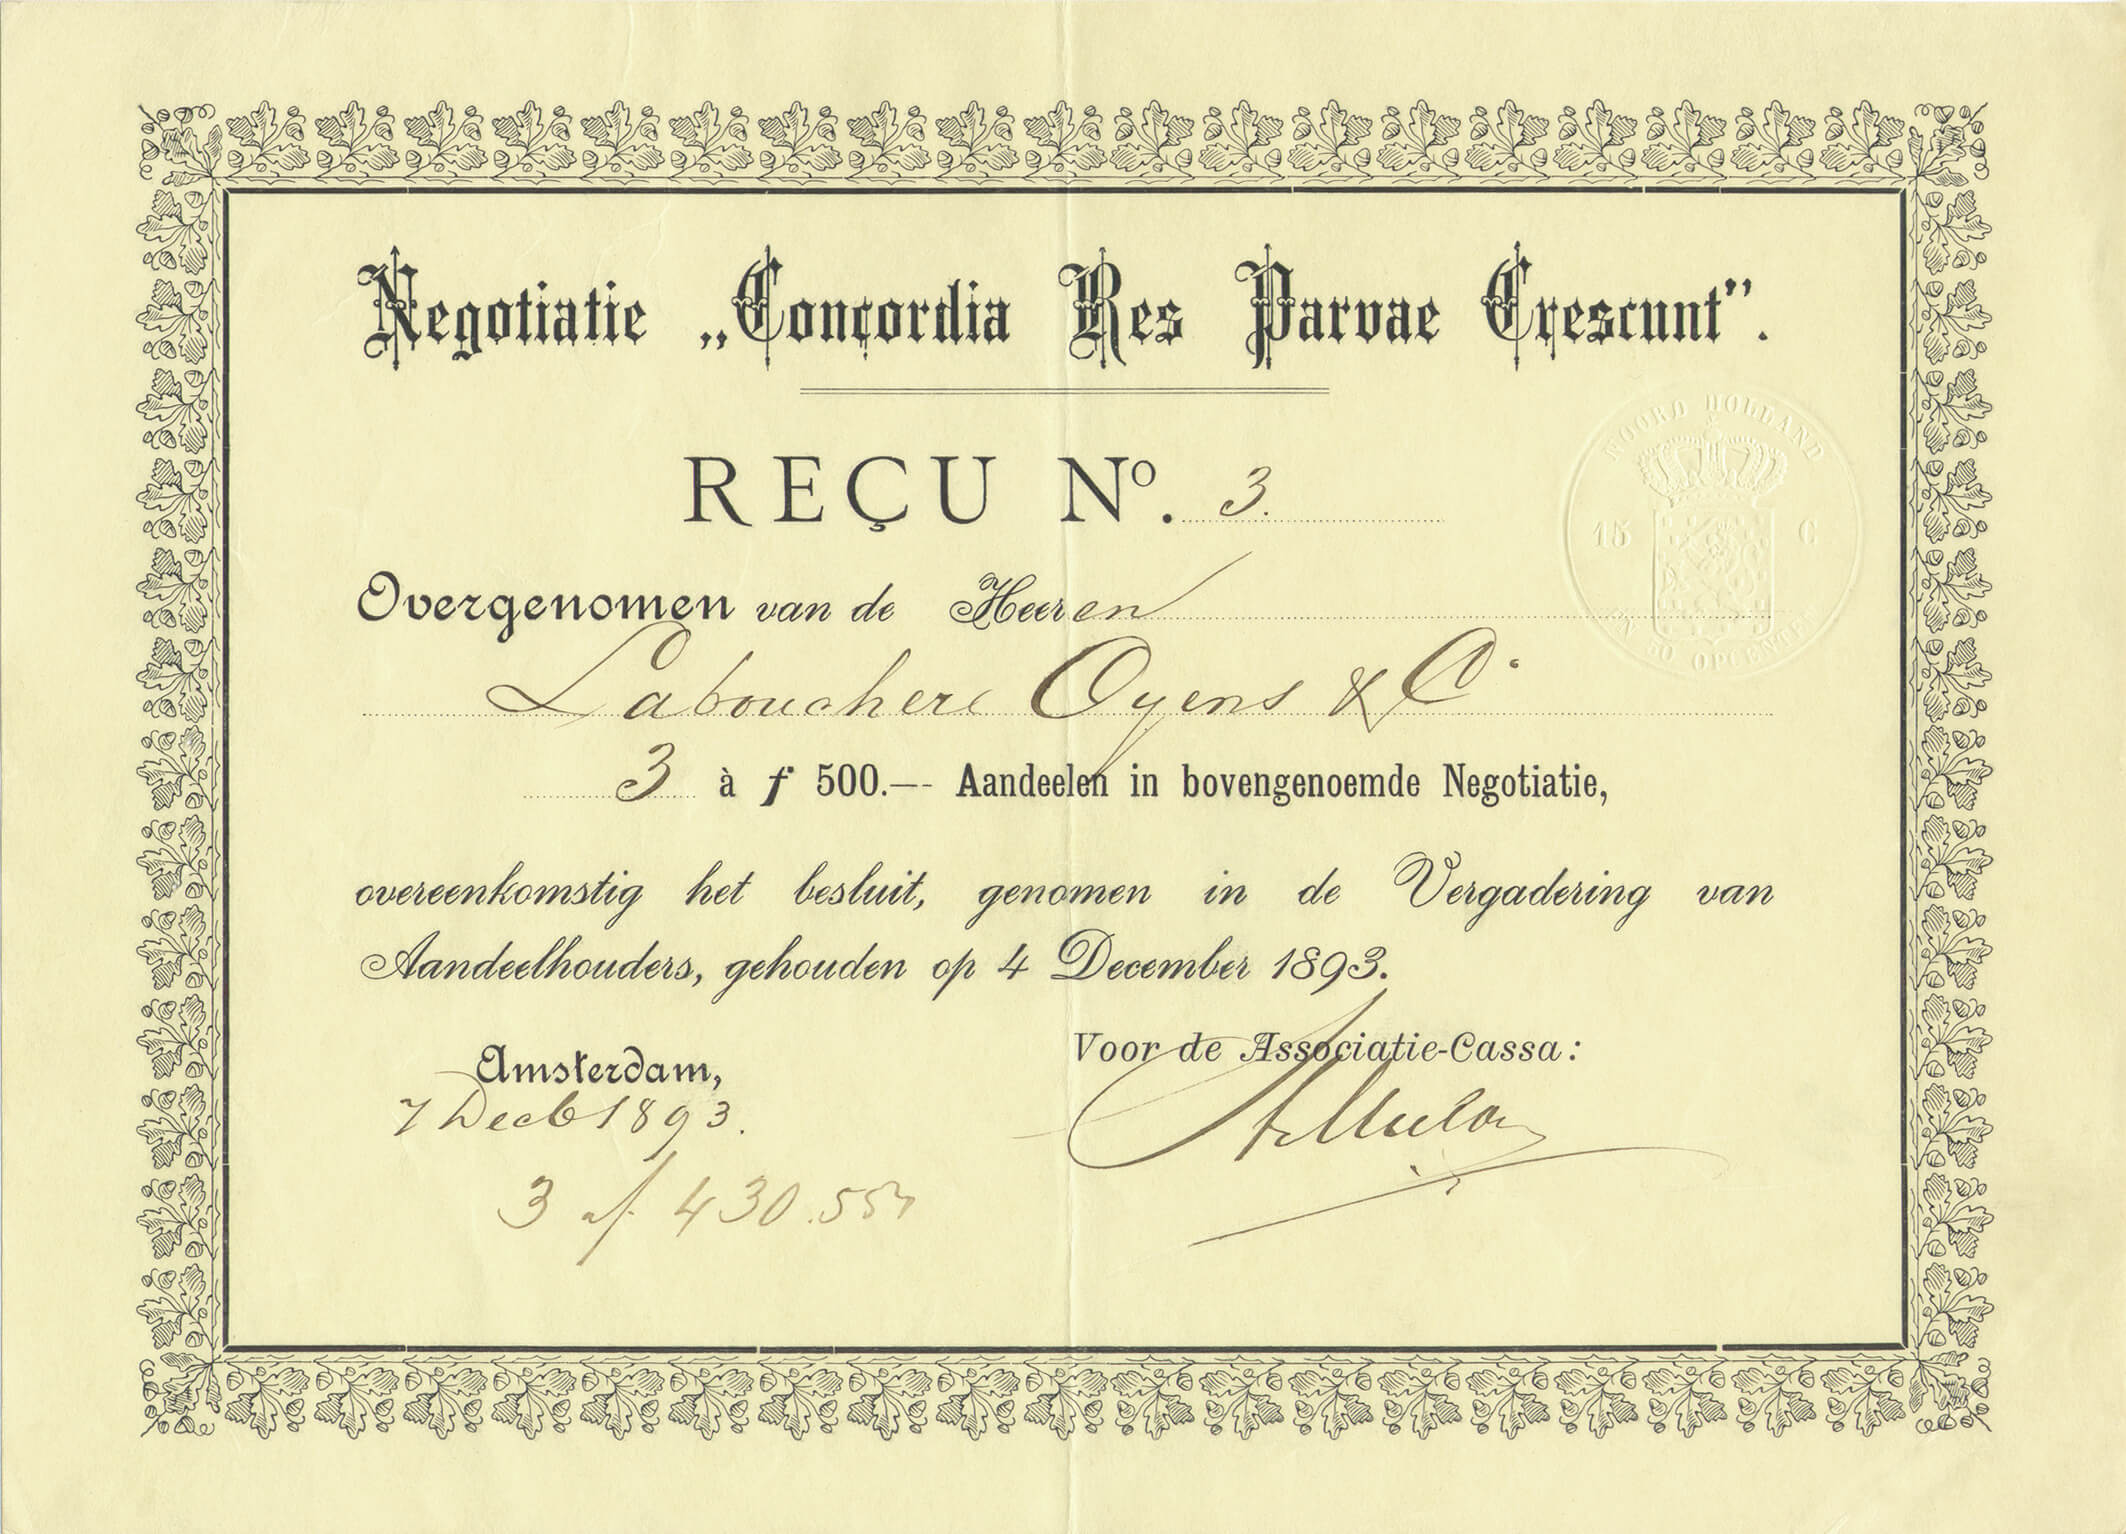 Negotiatie „Concordia Res Parvae Crescunt".
REÇU No. 3.
Overgenomen van de Heeren
Labouchere Oyens & Co
3 à ƒ 500.— Aandeelen in bovengenoemde Negotiatie,
overeenkomstig het besluit, genomen in de Vergadering van
Aandeelhouders, gehouden op 4 December 1893.
Voor de Associatie-Cassa:
Amsterdam,
7 Decb 1893.
3 af 430.55
NOORD HOLLAND
15 C
50 OPCENTEN